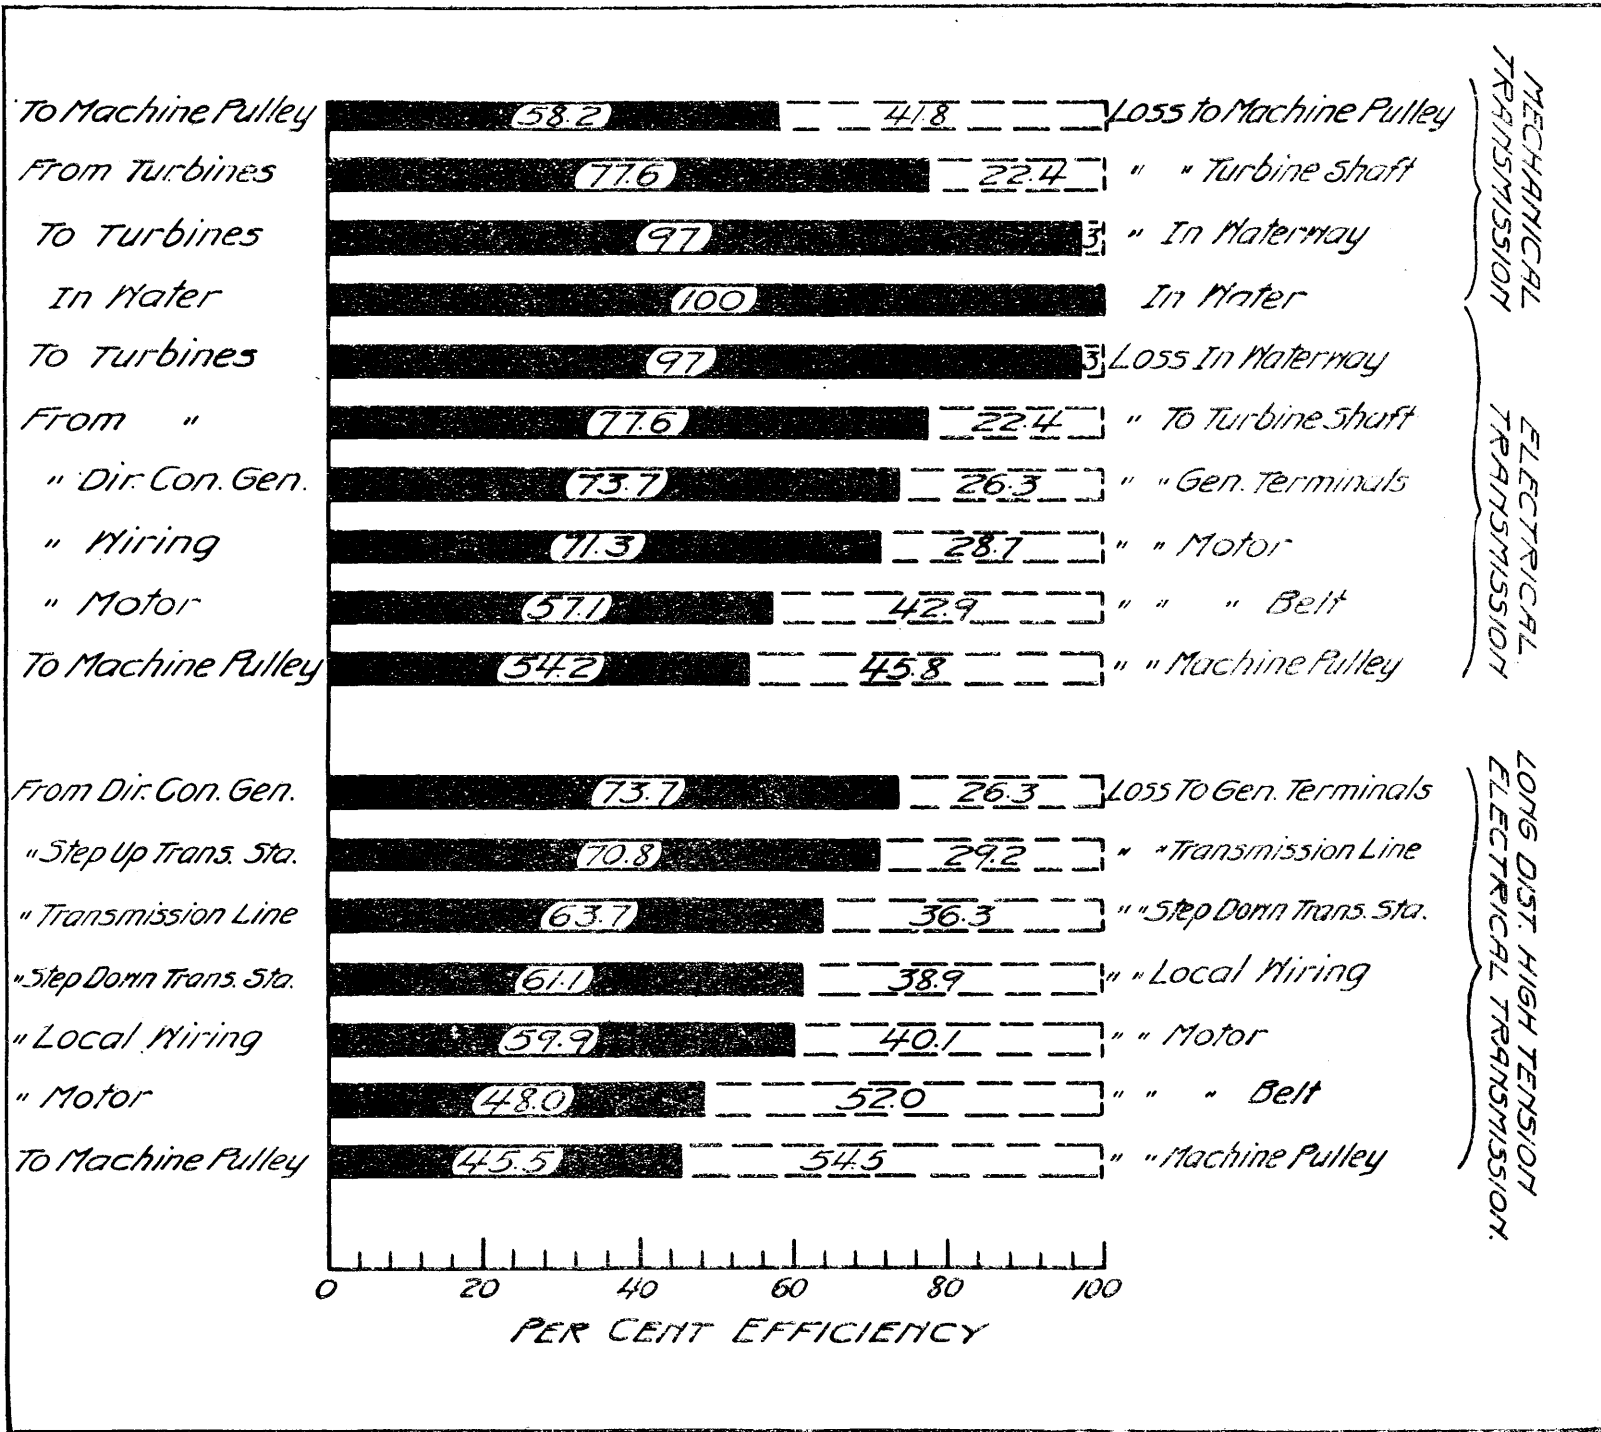 To Machine Pulley 58.2 41.8 Loss to Machine Pulley
From Turbines 77.6 22.4 " " Turbine Shaft
To Turbines 97 3 " In Waterway
In Water 100 In Water
To Turbines 97 3 Loss In Waterway
From " 77.6 22.4 " To Turbine Shaft
" Dir. Con. Gen. 73.7 26.3 " " Gen. Terminals
" Wiring 71.3 28.7 " " Motor
" Motor 57.1 42.9 " " " Belt
To Machine Pulley 54.2 45.8 " " Machine Pulley
From Dir. Con. Gen. 73.7 26.3 Loss To Gen. Terminals
" Step Up Trans. Sta. 70.8 29.2 " " Transmission Line
" Transmission Line 63.7 36.3 " " Step Down Trans. Sta.
" Step Down Trans. Sta. 61.1 38.9 " " Local Wiring
" Local Wiring 59.9 40.1 " " Motor
" Motor 48.0 52.0 " " " Belt
To Machine Pulley 45.5 54.5 " " Machine Pulley
0 20 40 60 80 100
PER CENT EFFICIENCY
MECHANICAL
TRANSMISSION
ELECTRICAL
TRANSMISSION
LONG DIST. HIGH TENSION
ELECTRICAL TRANSMISSION.